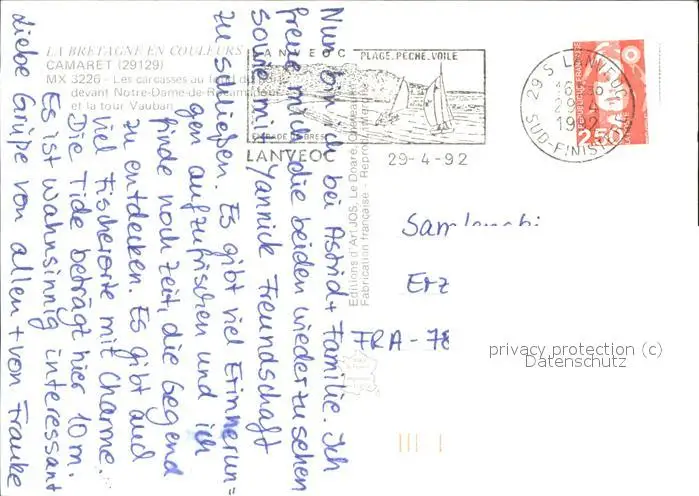 LA BRETAGNE EN COULEURS
CAMARET (29129)
MX 3226 - Les carcasses au fond du port
devant Notre-Dame-de-Rocamadour
et la tour Vauban
LANVEOC PLAGE.PECHE.VOILE
EN RADE DE BREST
LANVEOC
29-4-92
29 S LANVEOC
16 H 30
29-4
1992
SUD-FINISTERE
2,50
Editions d'Art JOS, Le Doaré,
Fabrication française - Reproduction
Nun bin ich bei Astrid + Familie. Ich
freue mich die beiden wiederzusehen
sowie mit Yannick Freundschaft
zu schließen. Es gibt viel Erinnerun=
gen aufzufrischen und ich
finde noch Zeit, die Gegend
zu entdecken. Es gibt auch
viel Fischerorte mit Charme.
Die Tide beträgt hier 10 m.
Es ist wahnsinnig interessant
Liebe Grüße von allen + von Frauke
Erz
FRA - 78
privacy protection (c)
Datenschutz